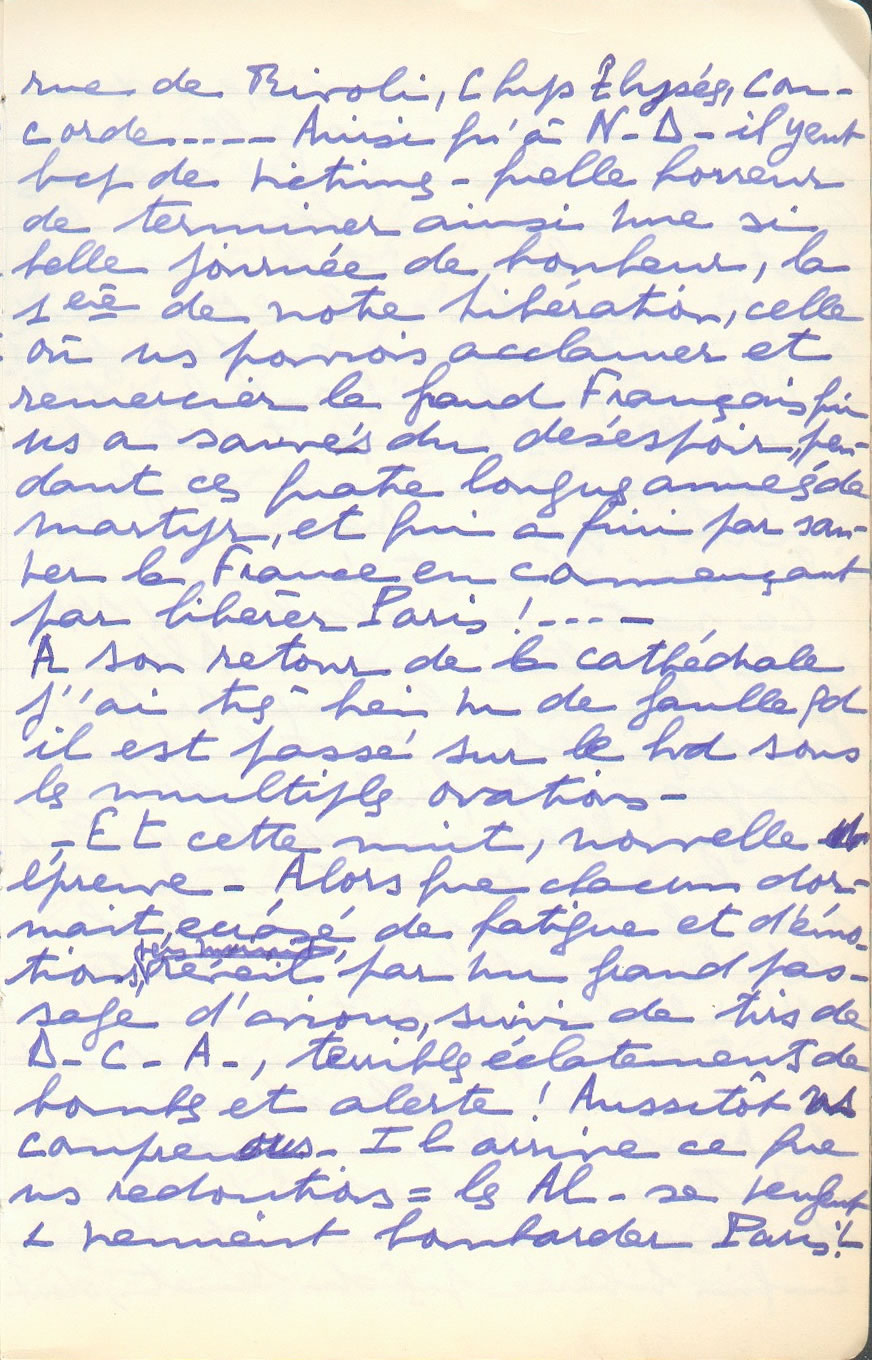 rue de Rivoli, Chps Elysées, Con-
corde---- Ainsi qu'à N-D- il y eut
bcp de victimes - quelle horreur
de terminer ainsi une si
belle journée de bonheur, la
1ère de notre libération, celle
où ns pouvions acclamer et
remercier le grand Français qui
ns a sauvés du désespoir, pen-
dant ces quatre longues années de
martyr, et qui a fini par sau-
ver la France en commençant
par libérer Paris !----
A son retour de la cathédrale
j'ai très bien vu de Gaulle qd
il est passé sur le bvd sous
les multiples ovations -
- Et cette nuit, nouvelle
épreuve - Alors que chacun dor-
mait, écrasé de fatigue et d'émo-
tions, réveil par un grand pas-
sage d'avions, suivi de tirs de
D-C-A-, terribles éclatements de
bombes et alerte ! Aussitôt ns
comprenons - Il arrive ce que
ns redoutions = les Al- se vengent
& viennent bombarder Paris !